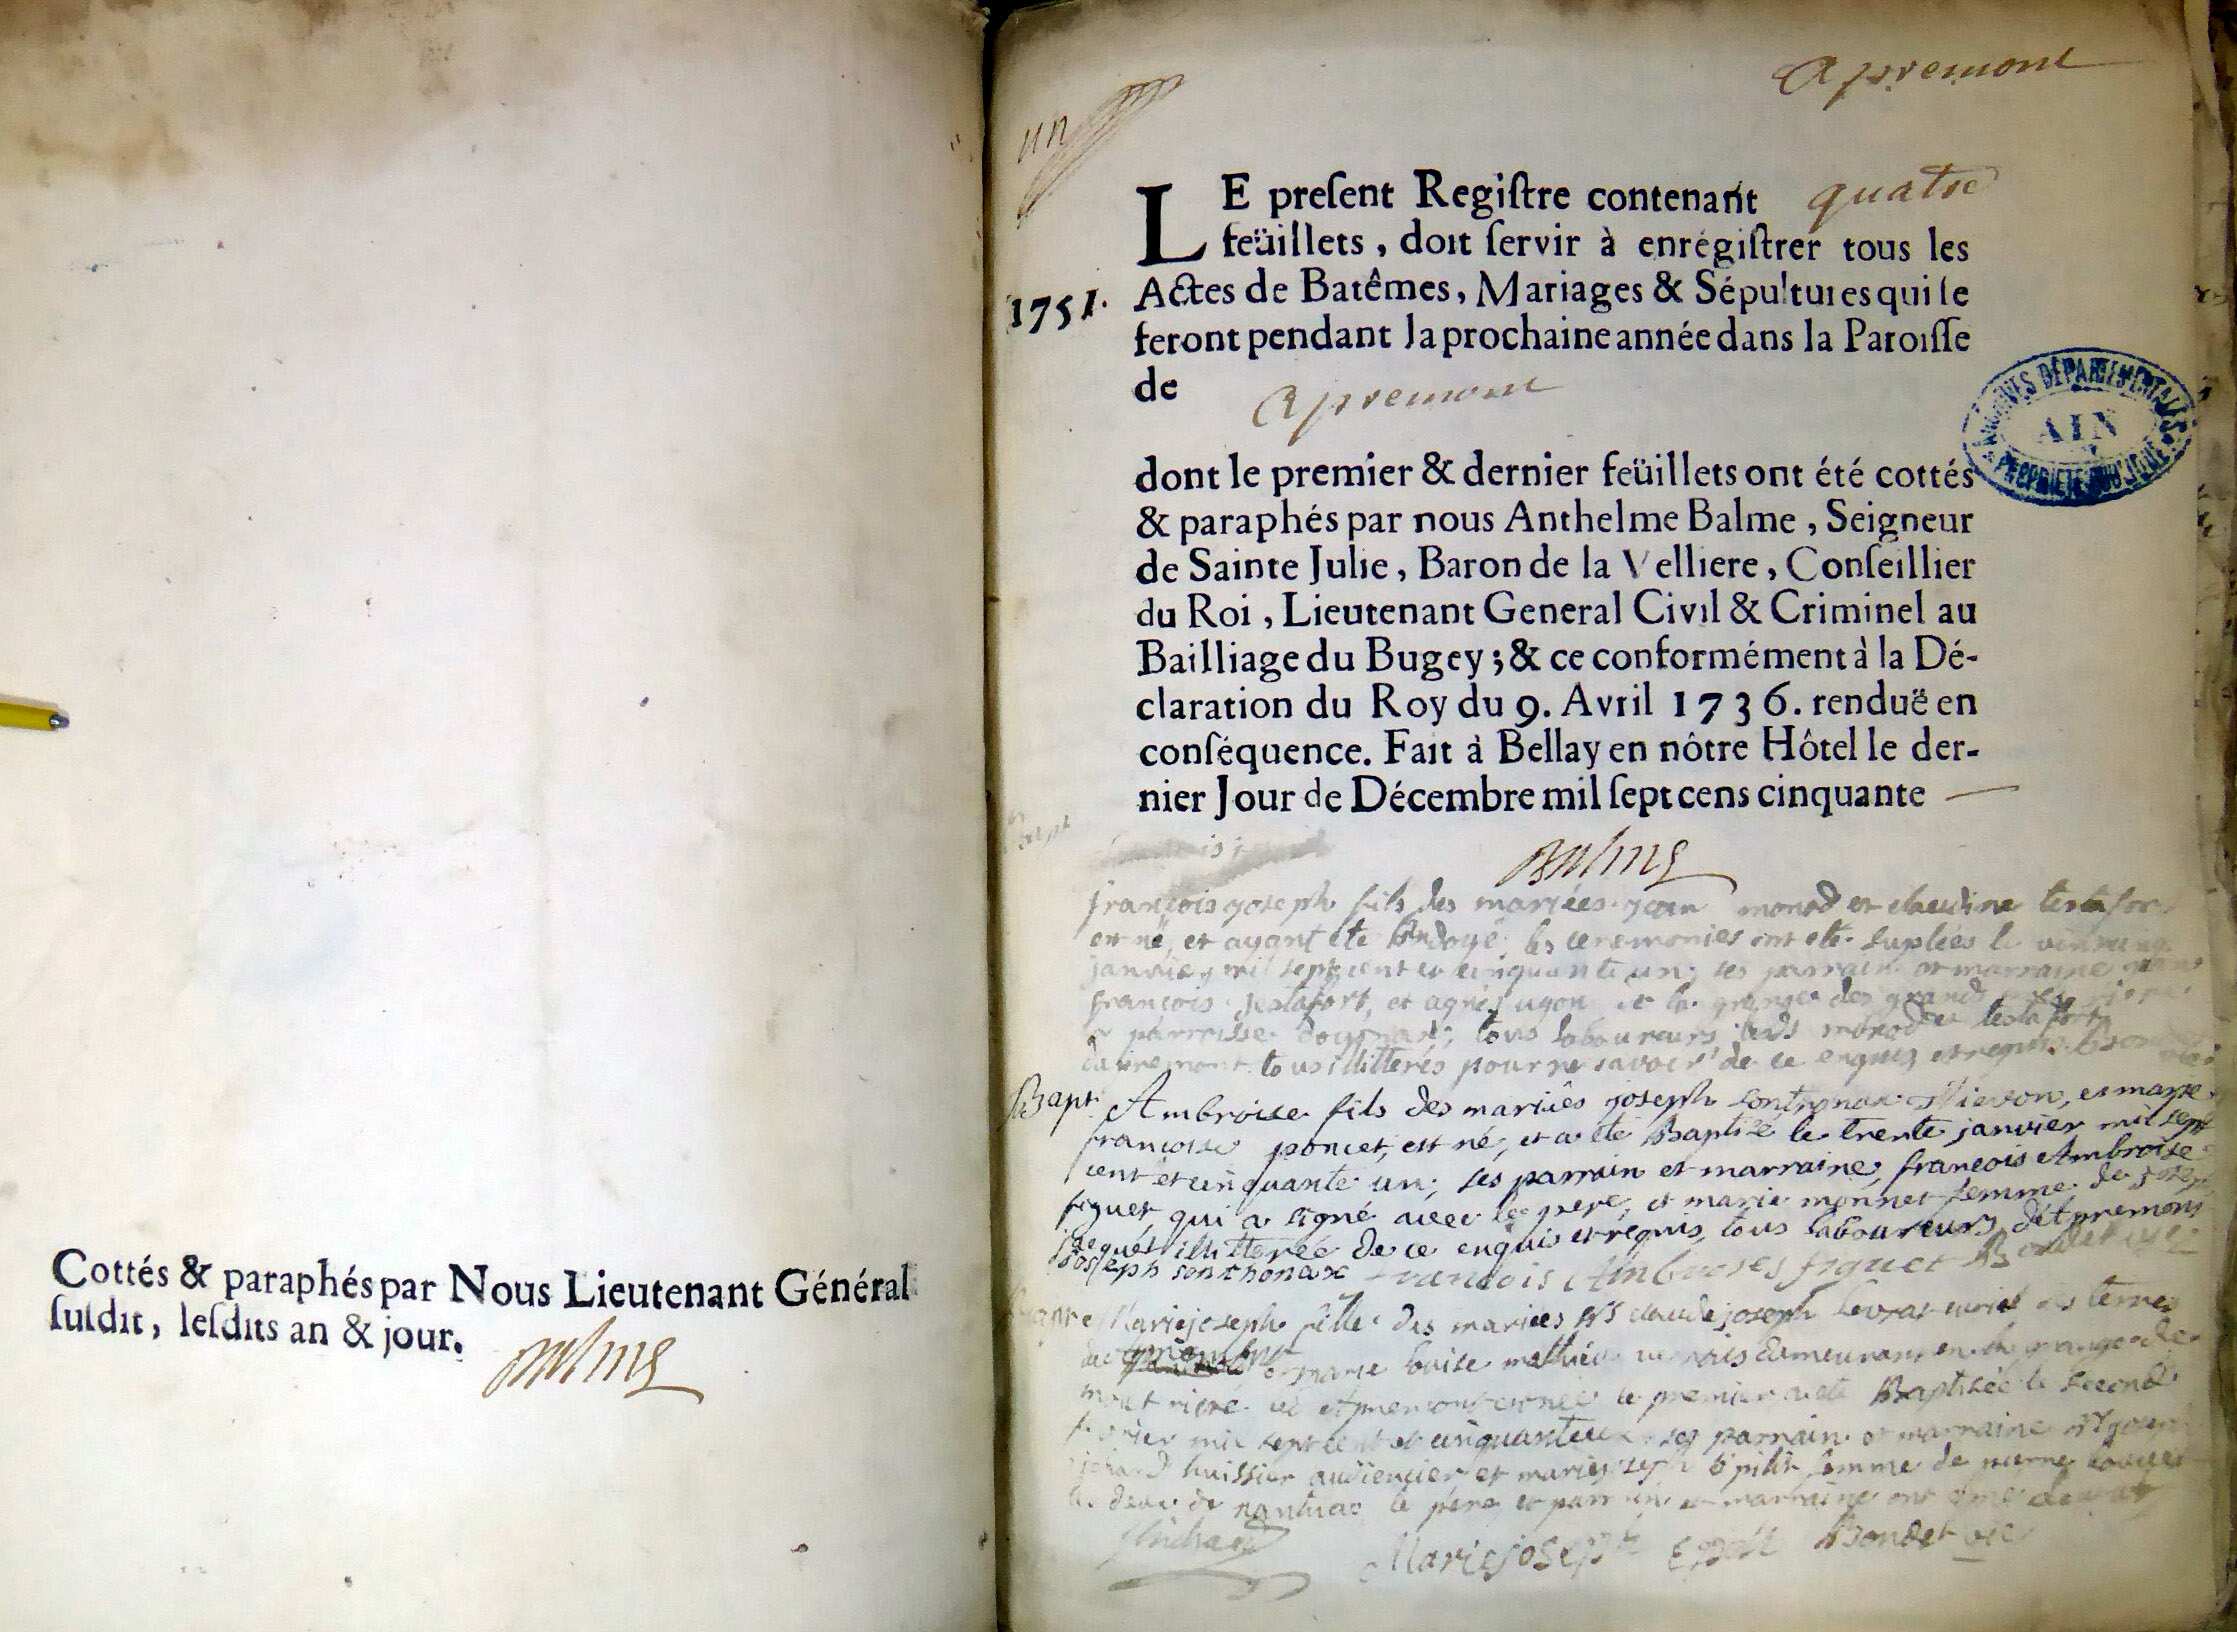 Cottés & paraphés par Nous Lieutenant Général
suſdit, leſdits an & jour.
Balme
apremont
un
LE preſent Regiſtre contenant quatre
feüillets, doit ſervir à enrégiſtrer tous les
1751. Actes de Batêmes, Mariages & Sépultures qui ſe
feront pendant la prochaine année dans la Paroiſſe
de apremont
ARCHIVES DÉPARTEMENTALES
AIN
PROPRIÉTÉ PUBLIQUE
dont le premier & dernier feüillets ont été cottés
& paraphés par nous Anthelme Balme, Seigneur
de Sainte Julie, Baron de la Velliere, Conſeillier
du Roi, Lieutenant General Civil & Criminel au
Bailliage du Bugey; & ce conformément à la Dé-
claration du Roy du 9. Avril 1736. renduë en
conſéquence. Fait à Bellay en nôtre Hôtel le der-
nier Jour de Décembre mil ſept cens cinquante
Balme
françois joseph fils des mariées jean monod et claudine testafort
est né, et ayant ete Bndoyé les ceremonies ont ete suplées le
janvier mil sept cent et cinquante un; ses parrain et marraine
françois testafort, et agnes ugon de la grange des grands
parroisse tous laboureurs monod et testafort
dapremont tous illitterés pour ne savoir de ce enquis et requis
Bapt. Ambroise fils des mariées joseph sonthonax et marie
françoise poncet, est né, et a ete Baptisé le trente janvier mil sept
cent et cinquante un; ses parrain et marraine, francois Ambroise
figuet qui a signé avec le pere, et marie monnet femme de
jaques illitterée de ce enquis et requis, tous laboureurs d'Apremont
joseph sonthonax francois Ambroises figuet Bondet vic
Bapt Marie joseph fille des mariées Sr claude joseph levrat
et marie louise mathieu demeurant en la grange de
d'Apremont est née le premier a ete Baptisée le second
février mil sept cent et cinquante un ses parrain et marraine
huissier audiencier et marie joseph femme de pierre
les deux de nantua, le pere et parrain et marraine ont signé
Marie joseph Bondet vic